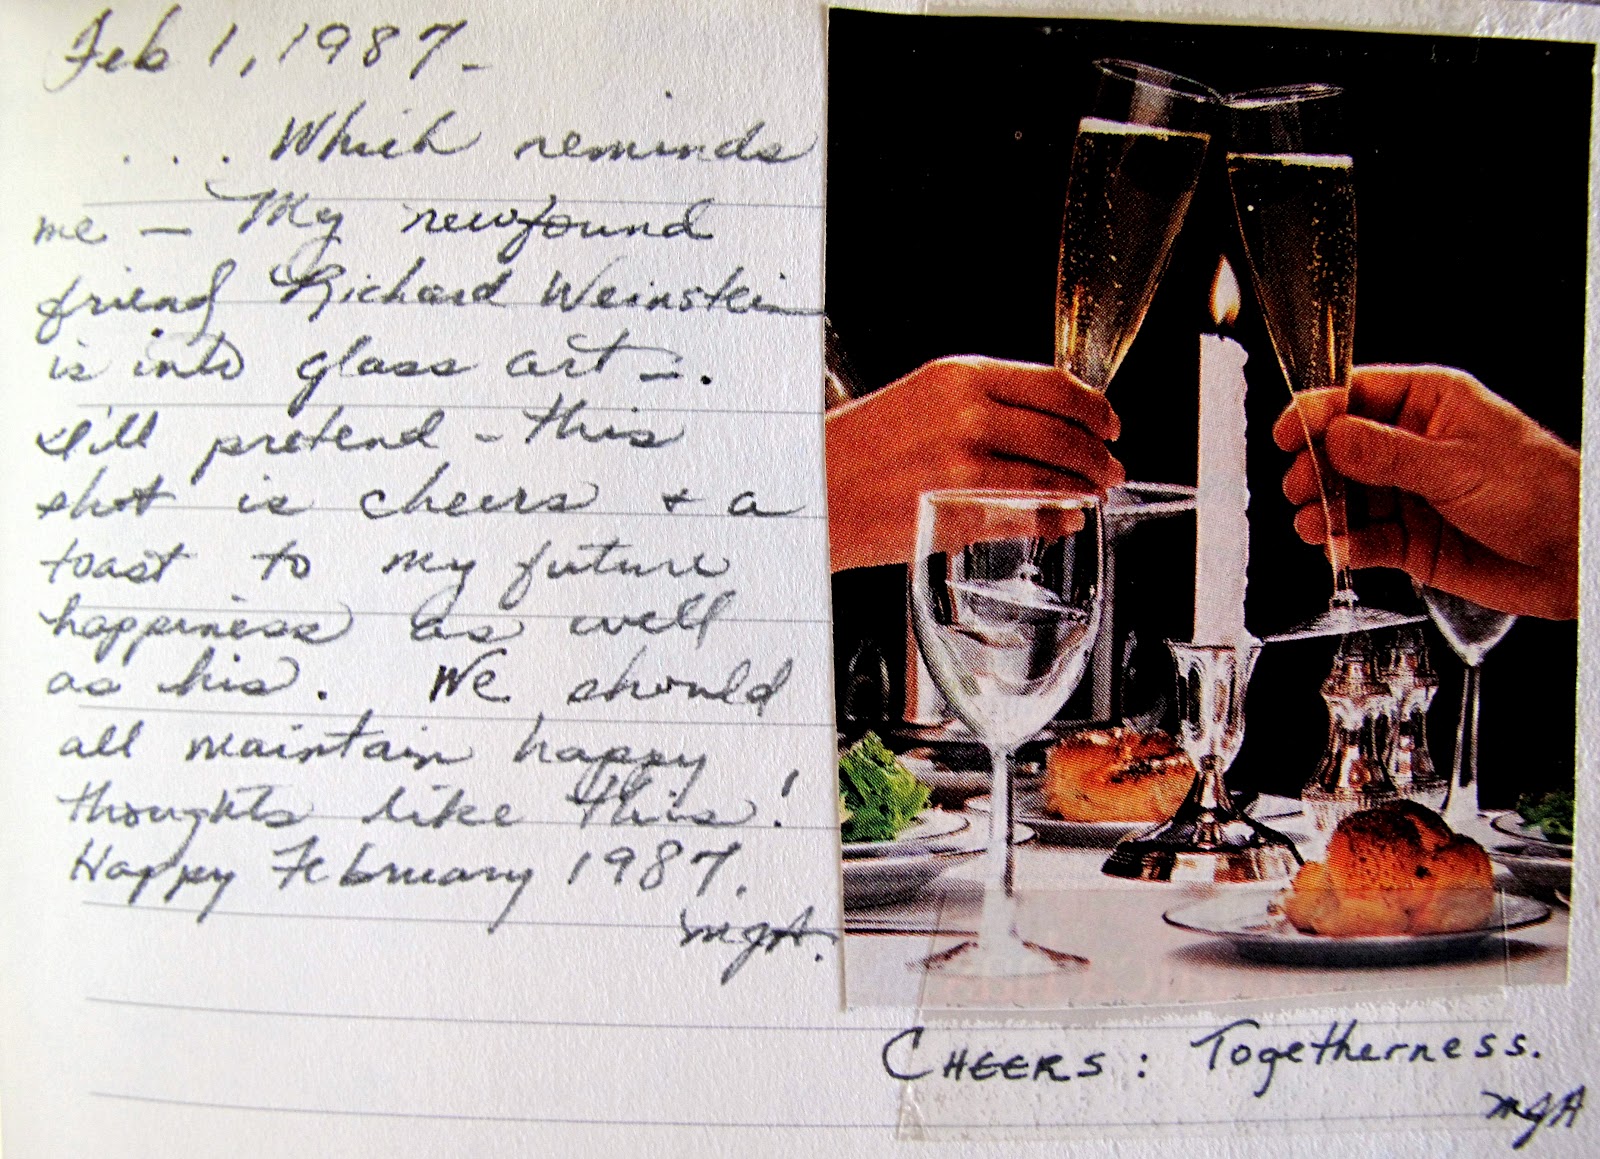 Feb 1, 1987 -
. . . . Which reminds
me — My newfound
friend Richard Weinstein
is into glass art —.
I'll pretend - this
shot is cheers + a
toast to my future
happiness as well
as his. We should
all maintain happy
thoughts like this!
Happy February 1987.
MJA.
CHEERS: Togetherness.
MJA